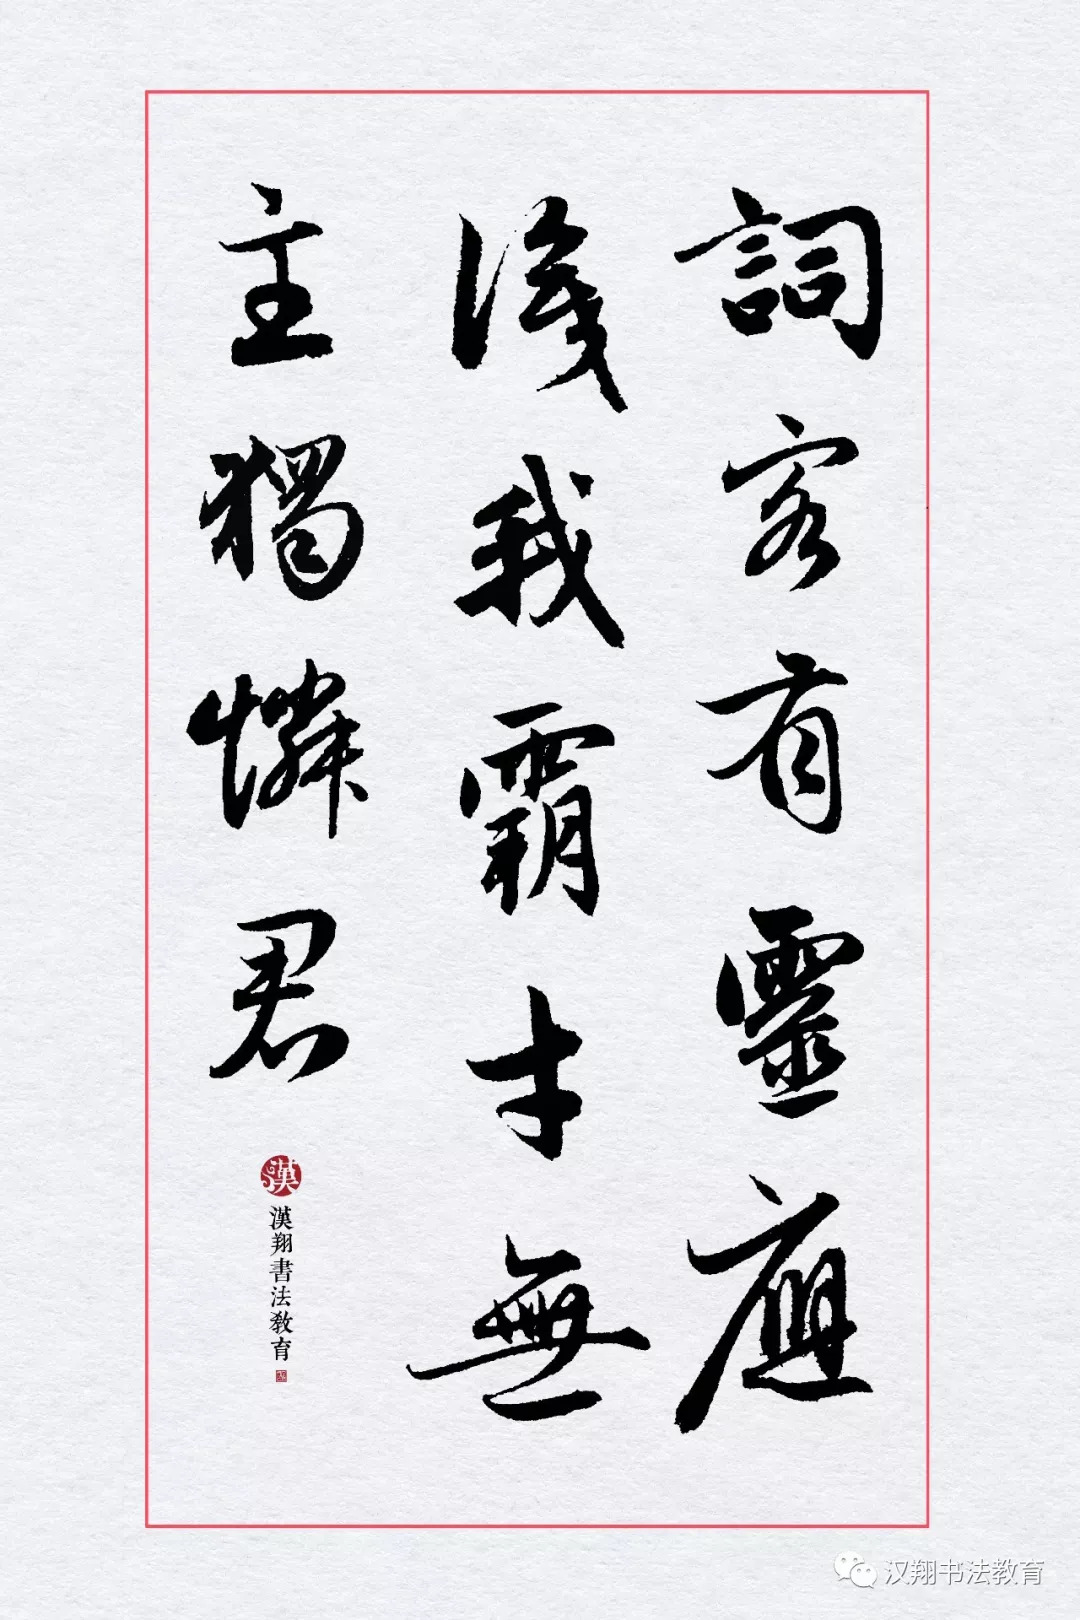 詞客有靈應
識我霸才無
主獨憐君
漢
漢翔書法教育
汉翔书法教育